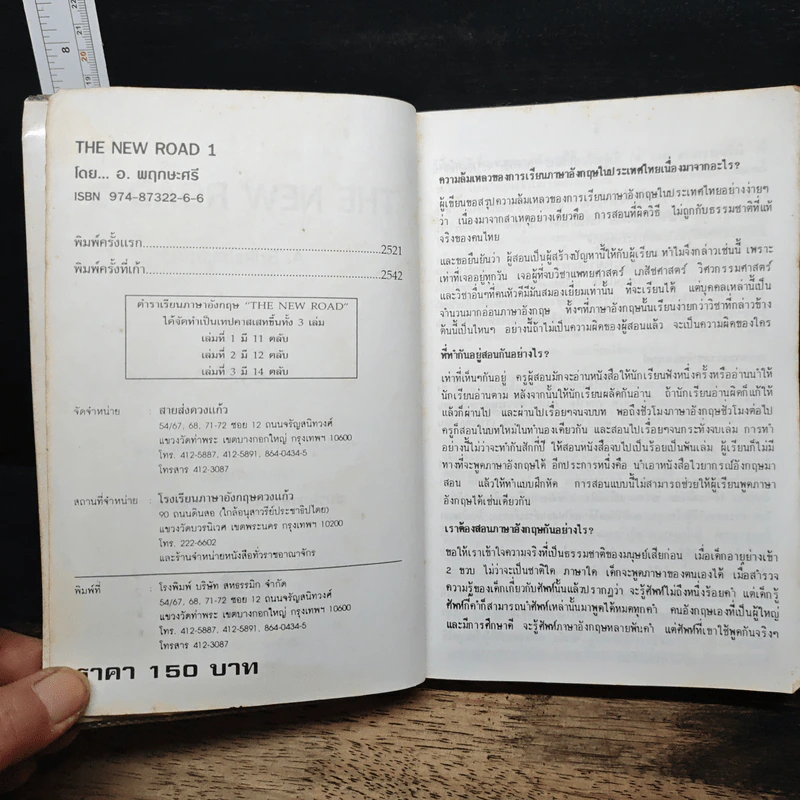 THE NEW ROAD 1
โดย... อ. พฤกษะศรี
ISBN 974-87322-6-6
พิมพ์ครั้งแรก....................................................2521
พิมพ์ครั้งที่เก้า..................................................2542
ตำราเรียนภาษาอังกฤษ "THE NEW ROAD"
ได้จัดทำเป็นเทปคาสเสทขึ้นทั้ง 3 เล่ม
เล่มที่ 1 มี 11 ตลับ
เล่มที่ 2 มี 12 ตลับ
เล่มที่ 3 มี 14 ตลับ
จัดจำหน่าย : สายส่งดวงแก้ว
54/67, 68, 71-72 ซอย 12 ถนนจรัญสนิทวงศ์
แขวงวัดท่าพระ เขตบางกอกใหญ่ กรุงเทพฯ 10600
โทร. 412-5887, 412-5891, 864-0434-5
โทรสาร 412-3087
สถานที่จำหน่าย : โรงเรียนภาษาอังกฤษดวงแก้ว
90 ถนนดินสอ (ใกล้อนุสาวรีย์ประชาธิปไตย)
แขวงวัดบวรนิเวศ เขตพระนคร กรุงเทพฯ 10200
โทร. 222-6602
และร้านจำหน่ายหนังสือทั่วราชอาณาจักร
พิมพ์ที่ : โรงพิมพ์ บริษัท สหธรรมิก จำกัด
54/67, 68, 71-72 ซอย 12 ถนนจรัญสนิทวงศ์
แขวงวัดท่าพระ เขตบางกอกใหญ่ กรุงเทพฯ 10600
โทร. 412-5887, 412-5891, 864-0434-5
โทรสาร 412-3087
ราคา 150 บาท
ความล้มเหลวของการเรียนภาษาอังกฤษในประเทศไทยเนื่องมาจากอะไร?
ผู้เขียนขอสรุปความล้มเหลวของการเรียนภาษาอังกฤษในประเทศไทยอย่างง่ายๆ
ว่า เนื่องมาจากสาเหตุอย่างเดียวคือ การสอนที่ผิดวิธี ไม่ถูกกับธรรมชาติที่แท้
จริงของคนไทย
และขอยืนยันว่า ผู้สอนเป็นผู้สร้างปัญหานี้ให้กับผู้เรียน ทำไมจึงกล่าวเช่นนี้ เพราะ
เท่าที่เจออยู่ทุกวัน เจอผู้ที่จบวิชาแพทยศาสตร์ เภสัชศาสตร์ วิศวกรรมศาสตร์
และวิชาอื่นๆที่คนหัวดีมีมันสมองเยี่ยมเท่านั้น ที่จะเรียนได้ แต่บุคคลเหล่านี้เป็น
จำนวนมากอ่อนภาษาอังกฤษ ทั้งๆที่ภาษาอังกฤษนั้นเรียนง่ายกว่าวิชาที่กล่าวข้าง
ต้นนี้เป็นไหนๆ อย่างนี้ถ้าไม่เป็นความผิดของผู้สอนแล้ว จะเป็นความผิดของใคร
ที่ทำกันอยู่สอนกันอย่างไร?
เท่าที่เห็นๆกันอยู่ ครูผู้สอนมักจะอ่านหนังสือให้นักเรียนฟังหนึ่งครั้งหรืออ่านนำให้
นักเรียนอ่านตาม หลังจากนั้นให้นักเรียนผลัดกันอ่าน ถ้านักเรียนอ่านผิดก็แก้ให้
แล้วก็ผ่านไป และผ่านไปเรื่อยๆจนจบบท พอถึงชั่วโมงภาษาอังกฤษชั่วโมงต่อไป
ครูก็สอนในบทใหม่ในทำนองเดียวกัน และสอนไปเรื่อยๆจนกระทั่งจบเล่ม การทำ
อย่างนี้ไม่ว่าจะทำกันสักกี่ปี ให้สอนหนังสือจบไปเป็นร้อยเป็นพันเล่ม ผู้เรียนก็ไม่มี
ทางที่จะพูดภาษาอังกฤษได้ อีกประการหนึ่งคือ นำเอาหนังสือไวยากรณ์อังกฤษมา
สอน แล้วให้ทำแบบฝึกหัด การสอนแบบนี้ไม่สามารถช่วยให้ผู้เรียนพูดภาษา
อังกฤษได้เช่นเดียวกัน
เราต้องสอนภาษาอังกฤษกันอย่างไร?
ขอให้เราเข้าใจความจริงที่เป็นธรรมชาติของมนุษย์เสียก่อน เมื่อเด็กอายุย่างเข้า
2 ขวบ ไม่ว่าจะเป็นชาติใด ภาษาใด เด็กจะพูดภาษาของตนเองได้ เมื่อสำรวจ
ความรู้ของเด็กเกี่ยวกับศัพท์นั้นแล้วปรากฏว่า จะรู้ศัพท์ไม่ถึงหนึ่งร้อยคำ แต่เด็กรู้
ศัพท์กี่คำก็สามารถนำศัพท์เหล่านั้นมาพูดได้หมดทุกคำ คนอังกฤษเองที่เป็นผู้ใหญ่
และมีการศึกษาดี จะรู้ศัพท์ภาษาอังกฤษหลายพันคำ แต่ศัพท์ที่เขาใช้พูดกันจริงๆ